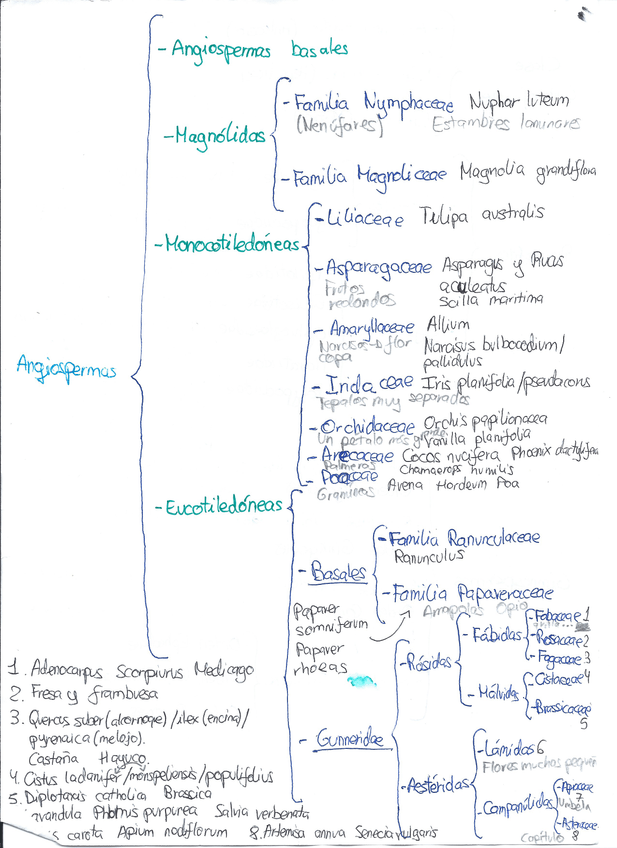 - Angiospermas basales
- Magnólidas
- Familia Nymphaceae Nuphar luteum
(Nenúfares) Estambres laminares
- Familia Magnoliceae Magnolia grandiflora
- Monocotiledóneas
- Liliaceae Tulipa australis
- Asparagaceae Asparagus y Ruscus
Frutos aculeatus
redondos Scilla maritima
- Amaryllaceae Allium
Narcisos flor Narcisus bulbocodium/
copa pallidulus
Angiospermas
- Iridaceae Iris planifolia/pseudacorus
Tépalos muy separados
- Orchidaceae Orchis papilionacea
Un petalo más grande Vanilla planifolia
- Arecaceae Cocos nucifera Phoenix dactylifera
Palmeras Chamaerops humilis
- Poaceae Avena Hordeum Poa
Gramíneas
- Eucotiledóneas
- Basales
- Familia Ranunculaceae
Ranunculus
- Familia Papaveraceae
Amapolas Opio
Papaver
somniferum
Papaver
rhoeas
- Gunneridae
- Rósidas
- Fábidas
- Fabaceae 1
- Rosaceae 2
- Fagaceae 3
- Málvidas
- Cistaceae 4
- Brassicaceae
5
- Astéridas
- Lámidas 6
Flores muchas
- Campanúlidas
- Apiaceae
7
Umbela
- Asteraceae
Capítulo 8
1. Adenocarpus Scorpiurus Medicago
2. Fresa y frambuesa
3. Quercus suber (alcornoque) /ilex (encina)/
pyrenaica (melojo).
Castaña Hayuco.
4. Cistus ladanifer/monspeliensis/populifolius
5. Diplotaxis catholica Brassica
avandula purpurea Salvia verbenata
carota Apium nodiflorum 8. Artemisa annua Senecia vulgaris